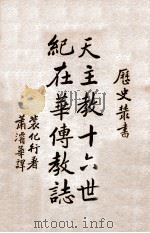 歷史叢書
天主教十六世
紀在華傳教誌
裴化行著
蕭濬華譯
mtoou.info